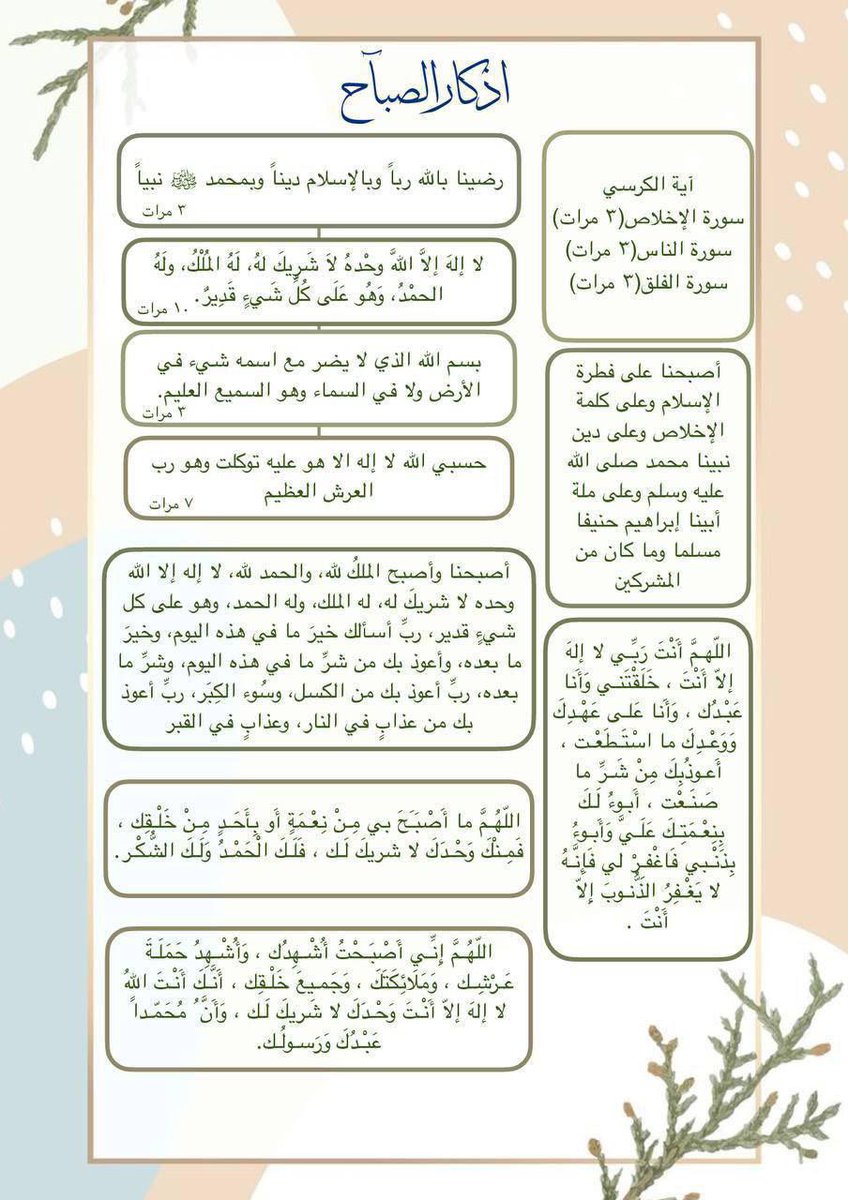 اذكار الصباح
آية الكرسي
سورة الإخلاص(٣ مرات)
سورة الناس(٣ مرات)
سورة الفلق(٣ مرات)
أصبحنا على فطرة
الإسلام وعلى كلمة
الإخلاص وعلى دين
نبينا محمد صلى الله
عليه وسلم وعلى ملة
أبينا إبراهيم حنيفا
مسلما وما كان من
المشركين
اللّهـمَّ أَنْتَ رَبِّـي لا إلهَ
إلاّ أَنْتَ ، خَلَقْتَنـي وَأَنا
عَبْـدُك ، وَأَنا عَلـى عَهْـدِكَ
وَوَعْـدِكَ ما اسْتَـطَعْـت ،
أَعـوذُبِكَ مِنْ شَـرِّ ما
صَنَـعْت ، أَبـوءُ لَـكَ
بِنِعْمَتِـكَ عَلَـيَّ وَأَبـوءُ
بِذَنْـبي فَاغْفِـرْ لي فَإِنَّـهُ
لا يَغْـفِرُ الذُّنـوبَ إِلاّ
أَنْتَ .
رضينا بالله رباً وبالإسلام ديناً وبمحمد ﷺ نبياً
٣ مرات
لا إلهَ إلاَّ اللَّه وحْدهُ لاَ شَرِيكَ لهُ، لَهُ المُلْكُ، ولَهُ
الحمْدُ، وَهُو عَلَى كُلِّ شَيءٍ قَدِيرٌ.
١٠ مرات
بسم الله الذي لا يضر مع اسمه شيء في
الأرض ولا في السماء وهو السميع العليم.
٣ مرات
حسبي الله لا إله الا هو عليه توكلت وهو رب
العرش العظيم
٧ مرات
أصبحنا وأصبح الملكُ لله، والحمد لله، لا إله إلا الله
وحده لا شريكَ له، له الملك، وله الحمد، وهو على كل
شيءٍ قدير، ربِّ أسألك خيرَ ما في هذه اليوم، وخيرَ
ما بعده، وأعوذ بك من شرِّ ما في هذه اليوم، وشرِّ ما
بعده، ربِّ أعوذ بك من الكسل، وسُوء الكِبَر، ربِّ أعوذ
بك من عذابٍ في النار، وعذابٍ في القبر
اللّهُـمَّ ما أَصْبَـَحَ بي مِـنْ نِعْـمَةٍ أَو بِأَحَـدٍ مِـنْ خَلْـقِك ،
فَمِـنْكَ وَحْـدَكَ لا شريكَ لَـك ، فَلَـكَ الْحَمْـدُ وَلَـكَ الشُّكْـر.
اللّهُـمَّ إِنِّـي أَصْبَـحْتُ أُشْـهِدُك ، وَأُشْـهِدُ حَمَلَـةَ
عَـرْشِـك ، وَمَلَائِكَتَكَ ، وَجَمـيعَ خَلْـقِك ، أَنَّـكَ أَنْـتَ اللهُ
لا إلهَ إلاّ أَنْـتَ وَحْـدَكَ لا شَريكَ لَـك ، وَأَنَّ ُ مُحَمّـداً
عَبْـدُكَ وَرَسـولُـك.